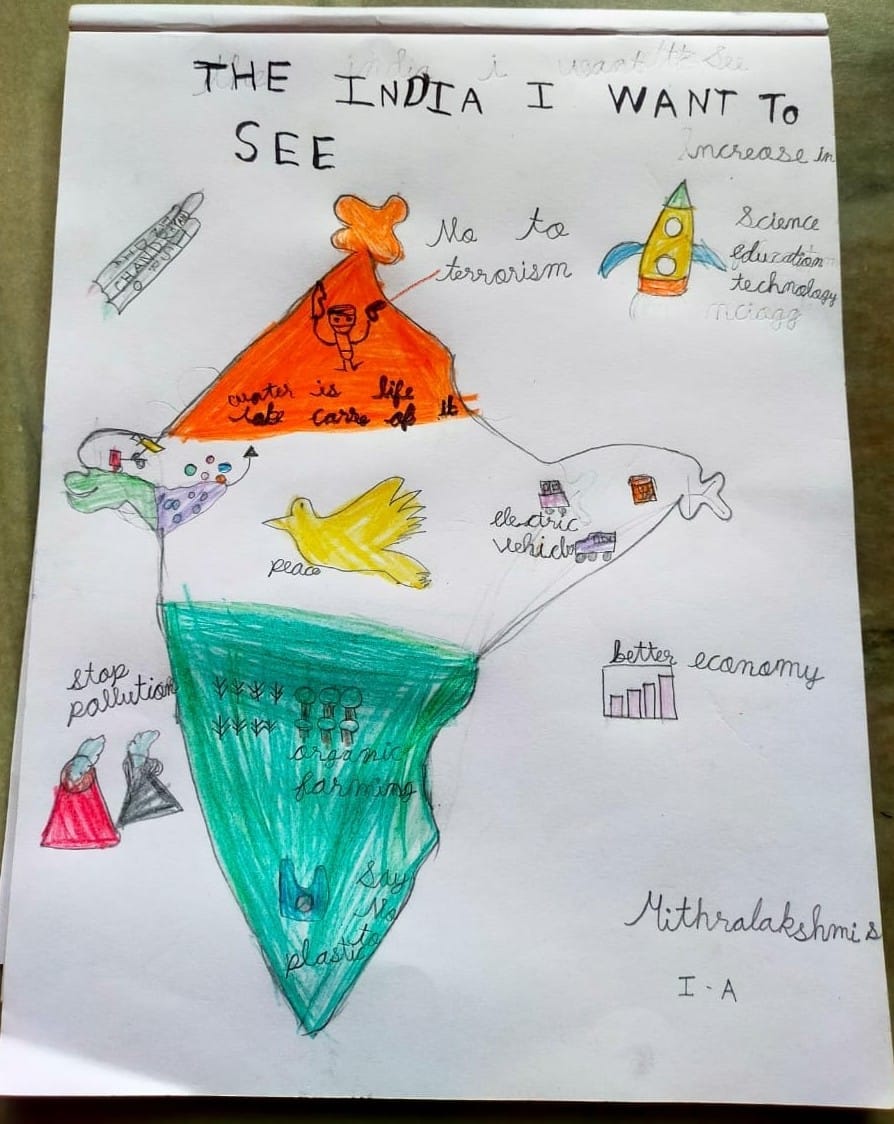 THE INDIA I WANT TO
SEE
the india i want to See
Increase in
Science
education
technology
No to
terrorism
CHANDRA
water is life
take carre of it
peace
electric
vehicle
stop
pollution
better economy
organic
farming
Say
No
to
plastic
Mithralakshmi S
I - A